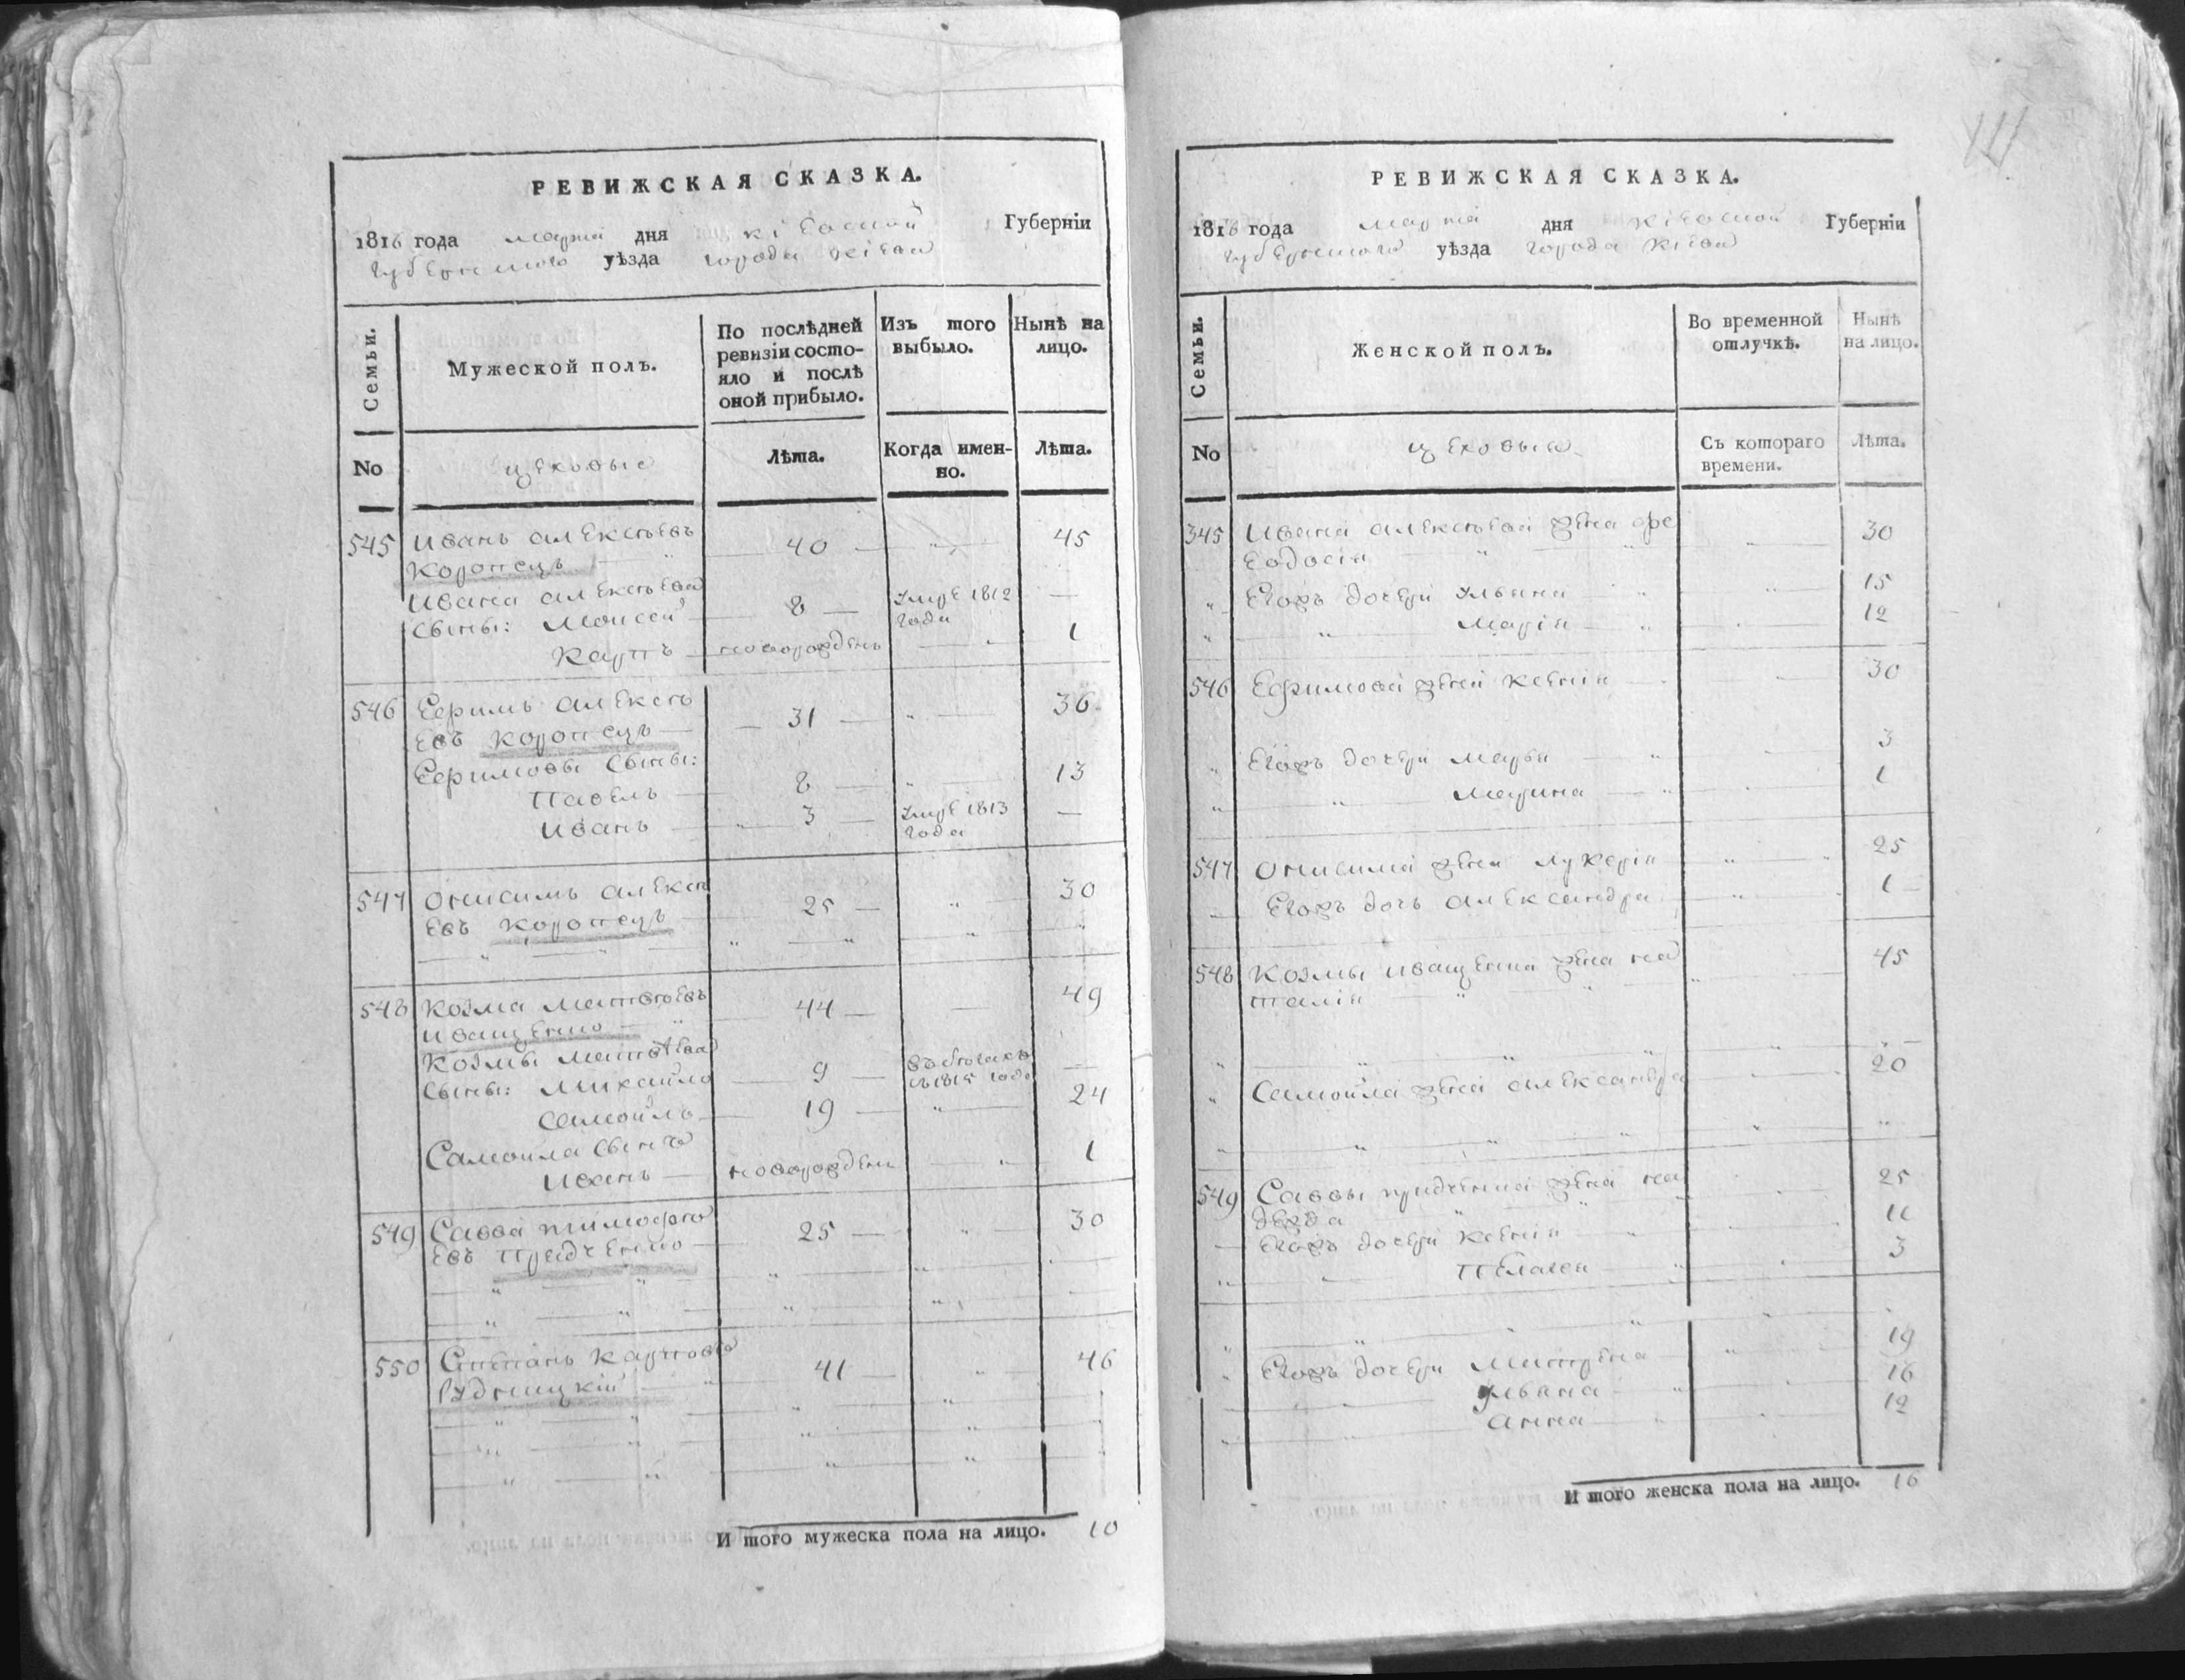 РЕВИЖСКАЯ СКАЗКА.
1816 года марта дня Кіевской Губерніи
Губернского уѣзда города Кіева
Семьи.
Мужеской полъ.
По послѣдней ревизіи состо-
яло и послѣ
оной прибыло.
Изъ того
выбыло.
Нынѣ на
лицо.
No
цеховые
Лѣта.
Когда имен-
но.
Лѣта.
545 Иванъ Алексѣевъ
Коропецъ 40 45
Ивана Алексѣева
сыны: Моисей 8 умре 1812 года
Карпъ новорожденъ 1
546 Ефимъ Алексѣ
евъ Коропецъ 31 36
Ефимовы сыны:
Павелъ 8 13
Иванъ 3 умре 1813 года
547 Онисимъ Алексѣ
евъ Коропецъ 25 30
548 Козма Матвѣевъ
Иващенко 44 49
Козмы Матвѣева
сыны: Михайло 9 въ бегахъ съ 1815 года
Самойлъ 19 24
Самоила сынъ
Иванъ новорожденъ 1
549 Савва Тимофѣ
евъ Придченко 25 30
550 Степанъ Карповъ
Рудницкій 41 46
И того мужеска пола на лицо. 10
РЕВИЖСКАЯ СКАЗКА.
1816 года марта дня Кіевской Губерніи
Губернского уѣзда города Кіева
Семьи.
Женской полъ.
Во временной
отлучкѣ.
Нынѣ
на лицо.
No
цеховыя
Съ котораго
времени.
Лѣта.
345 Ивана Алексѣева жена Фе
еодосія 30
Егожъ дочери Ульяна 15
Марія 12
546 Ефимова жена Ксенія 30
Егожъ дочери Марья 3
Марина 1
547 Онисима жена Лукерія 25
Егожъ дочь Александра 1
548 Козмы Иващенка жена На
талія 45
Самойла жена Александра 20
549 Саввы Придченка жена На
дежда 25
Егожъ дочери Ксенія 11
Пелагея 3
Егожъ дочери Матрена 19
Ульяна 16
Анна 12
И того женска пола на лицо. 16